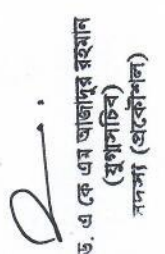 ড. এ কে এম আজাদুর রহমান
(যুগ্মসচিব)
সদস্য (প্রকৌশল)